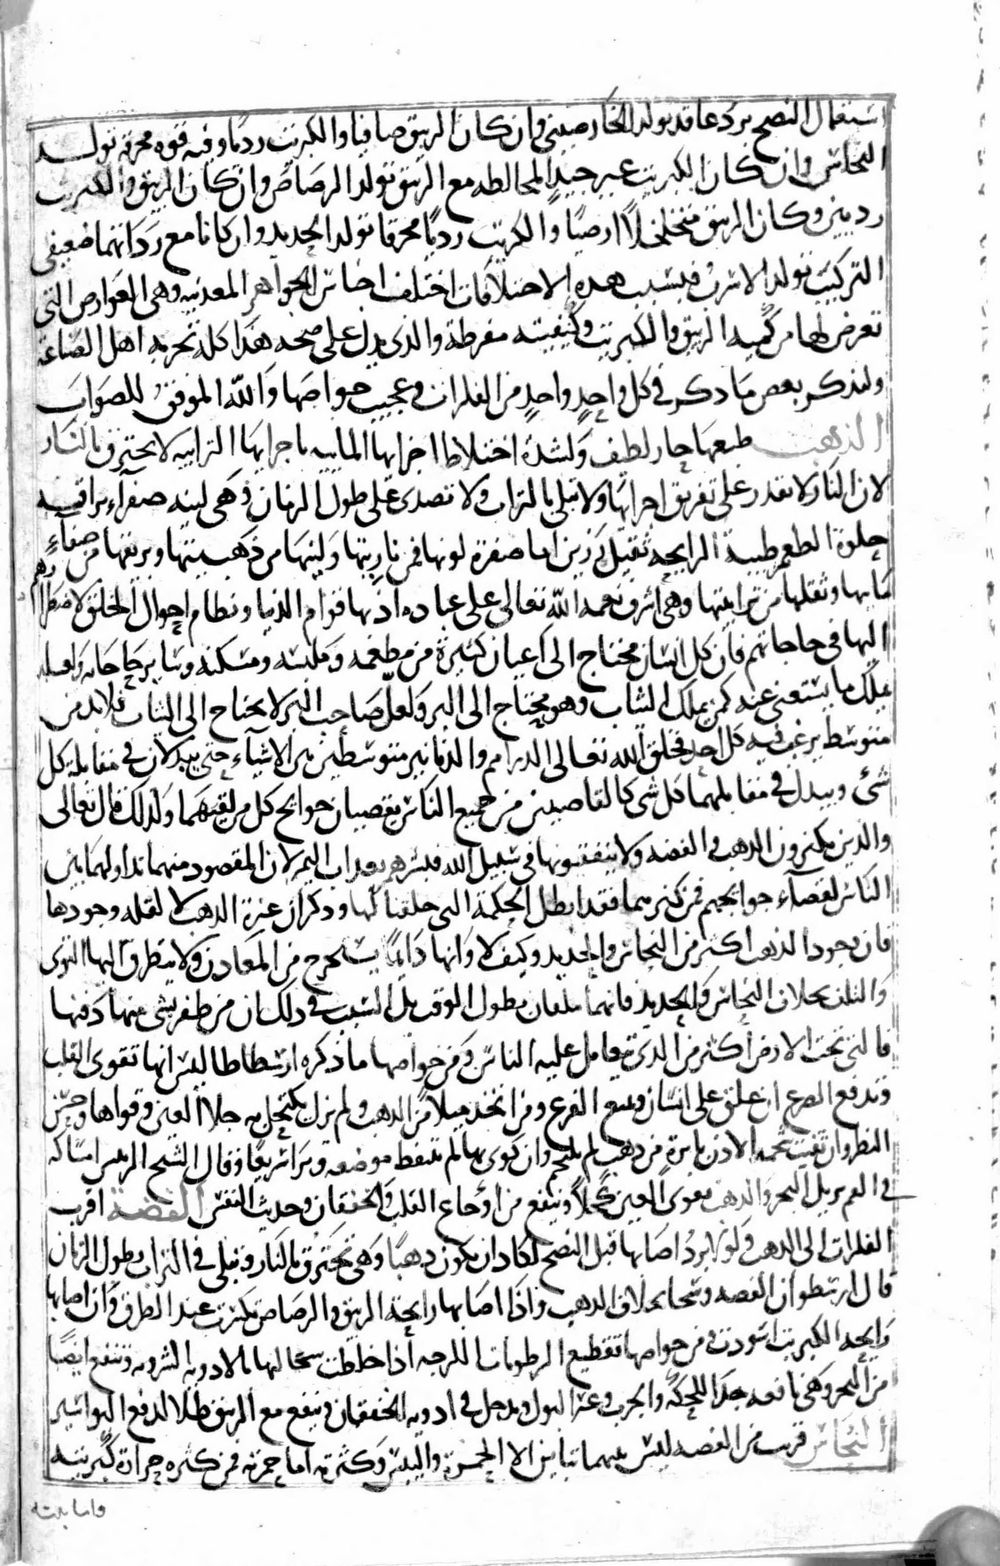 استعمال النضج برد عاقد تولد الخارصيني وان كان الزيبق صافيا والكبريت رديا وفيه قوة محرقة تولد
النحاس وان كان الكبريت غير جيد المخالطه مع الزيبق تولد الرصاص وان كان الزيبق والكبريت
رديين وكان الزيبق متخلخلا ارضيا والكبريت رديا محرقا تولد الحديد وان كانا مع رداتهما ضعيفي
التركيب تولد الاسرب فبسبب هذه الاختلافات اختلف اجناس الجواهر المعدنيه وهي العوارض التي
تعرض لها من كميه الزيبق والكبريت وكيفيته مفرطة والذي يدل على صحه هذا كله تجربه اهل الصناعة
ولنذكر بعض ما ذكر في كل واحد واحد من الفلزات وعجيب خواصها والله الموفق للصواب
الذهب طبعها حار لطيف ولشدة اختلاط اجزايها المايية باجزايها الترابيه لا يحترق بالنار
لان النار لا تقدر على تفريق اجزايها ولا تبلى بالتراب ولا تصدى على طول الزمان وهي لينه صفراء براقه
حلوة الطعم طيبة الرايحه ثقيل رزين اما صفرة لونها فمن ناريتها ولينها من دهنيتها وبريقها من صفاء
مايها وثقلها من ترابيتها وهي اشرف نعمه الله تعالى على عباده اذ بها قوام الدنيا ونظام احوال الخلق لاضطرارهم
اليها في حاجاتهم فان كل انسان محتاج الى اعيان كثيرة من مطعمه وملبسه ومسكنه وساير حاجاته ولعله
يملك ما يستغنى عنه كمن يملك الثياب وهو يحتاج الى البر ولعل صاحب البر لا يحتاج الى الثياب فلابد من
متوسط يرغب فيه كل احد فخلق الله تعالى الدراهم والدنانير متوسطين بين الاشياء حتى يبذلان في مقابلة كل
شئ ويبذل في مقابلهما كل شئ كالقاضيين من جميع الناس يقضيان حوايج كل من لقيهما ولذلك قال تعالى
والذين يكنزون الذهب والفضه ولا ينفقونها في سبيل الله فبشرهم بعذاب اليم لان المقصود منهما تداولهما بين
الناس لقضاء حوايجهم فمن كنزهما فقد ابطل الحكمة التي خلقتا لها وذكر ان عزة الذهب لا لقله وجودها
فان وجود الذهب اكثر من النحاس والحديد وكيف لا وانها دايما يستخرج من المعادن ولا يتطرق اليها التوى
والتلف بخلاف النحاس والحديد فانهما يتلفان بطول الوقت بل السبب في ذلك ان من ظفر بشي منها دفنها
فالتي تحت الارض اكثر من الذي يتعامل عليه الناس ومن خواصها ما ذكره ارسطاطاليس انها تقوي القلب
وتدفع الصرع ان علق على انسان وتمنع الفزع ومن اتخذ ميلا من الذهب ولم يزل يكتحل به جلا العين وقواها وحسن
النظر وان ثقبت شحمة الاذن بابرة من ذهب لم يلتحم وان كوى بها لم تنفط موضعه وبرا سريعا وقال الشيخ الرييس امساكه
في الفم يزيل البخر والذهب يقوي العين كحلا وينفع من اوجاع القلب والخفقان وحديث النفس الفضة اقرب
الفلزات الى الذهب ولولا برد اصابها قبل النضج لكاد ان يكون ذهبا وهي تحترق بالنار وتبلى في التراب بطول الزمان
قال ارسطو ان الفضه وسخا بخلاف الذهب واذا اصابها رايحة الزيبق والرصاص تكسرت عند الطرق وان اصابها
رايحه الكبريت اسودت ومن خواصها تقطيع الرطوبات اللزجه اذا خلطت سحالتها بالادويه المشروبه وتنفع ايضا
من البخر وهي نافعه جدا للحكة والجرب وعسر البول وتدخل في ادويه الخفقان وينفع مع الزيبق طلا لدفع البواسير
النحاس قريب من الفضه ليس بينهما تباين الا الحمرة واليبس وكثرته اما حمرته فمن كثره حرارة كبريته
واما يبسه